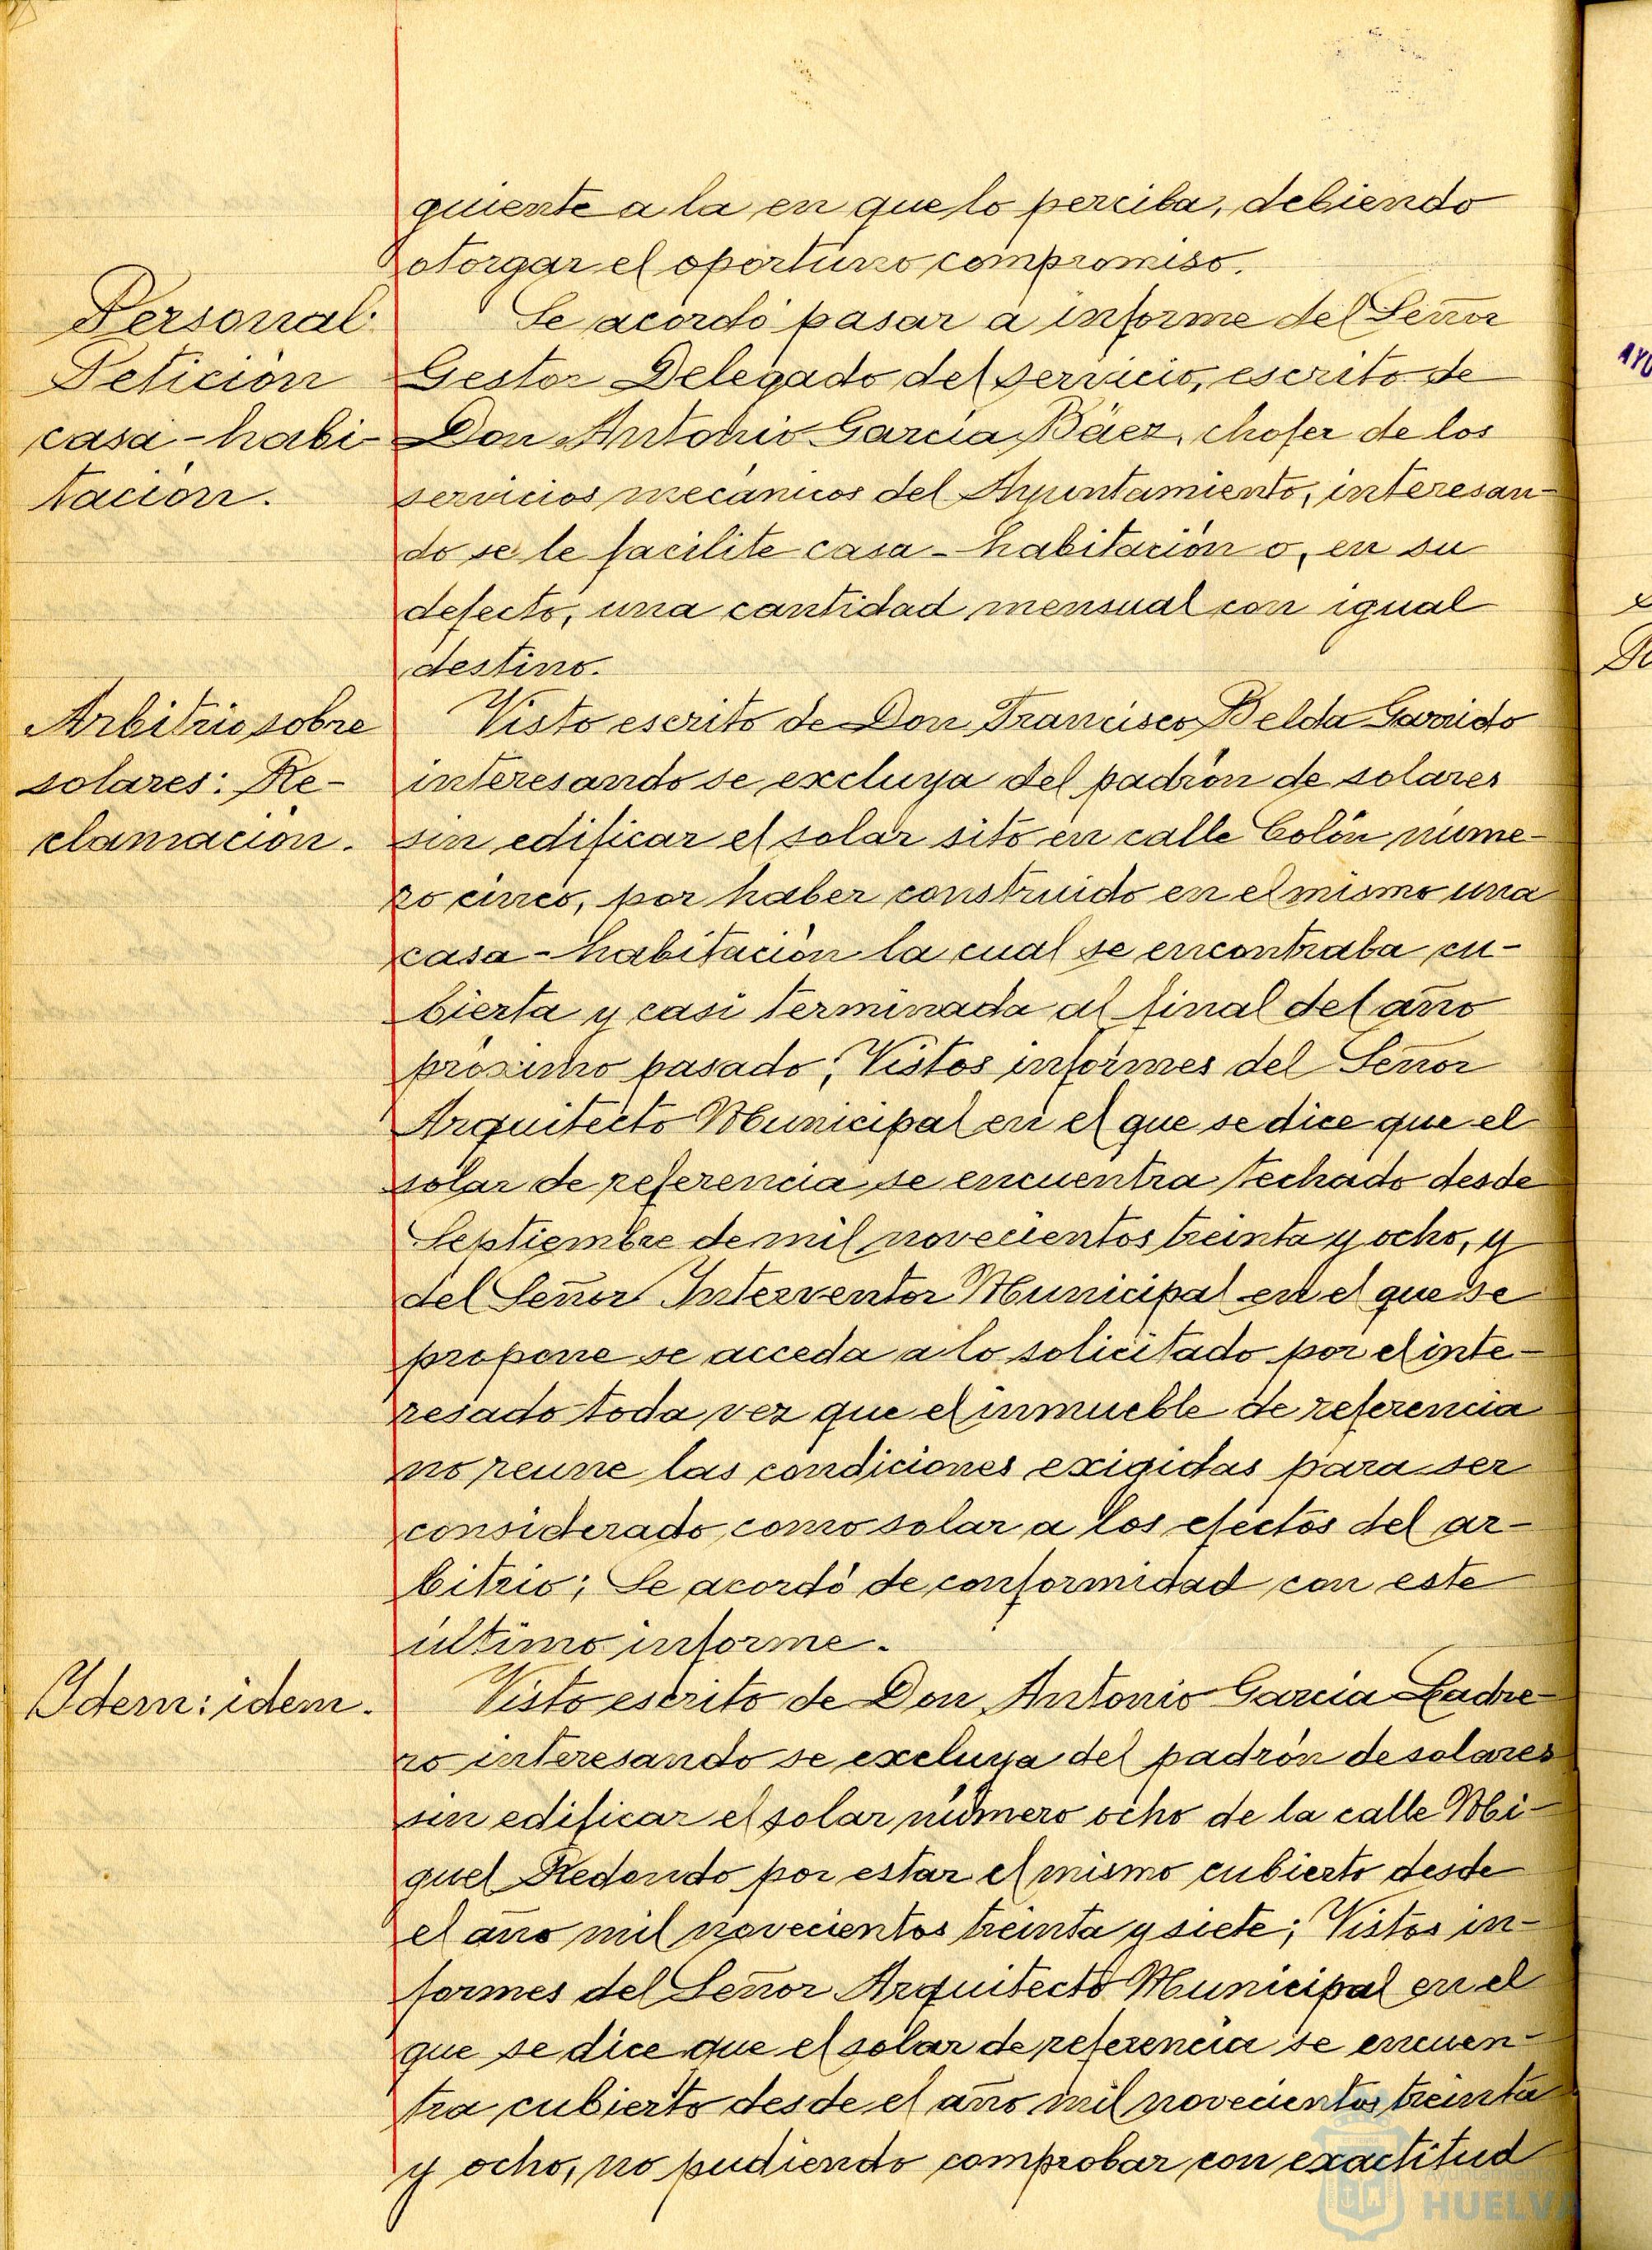 guiente a la en que lo perciba, debiendo
otorgar el oportuno compromiso.
Personal:
Petición
casa-habi-
tación.
Se acordó pasar a informe del Señor
Gestor Delegado del servicio, escrito de
Don Antonio García Báez, chofer de los
servicios mecánicos del Ayuntamiento, interesan-
do se le facilite casa-habitación o, en su
defecto, una cantidad mensual con igual
destino.
Arbitrio sobre
solares: Re-
clamación.
Visto escrito de Don Francisco Belda Garrido
interesando se excluya del padrón de solares
sin edificar el solar sito en calle Colón núme-
ro cinco, por haber construido en el mismo una
casa-habitación la cual se encontraba cu-
bierta y casi terminada al final del año
próximo pasado; Vistos informes del Señor
Arquitecto Municipal en el que se dice que el
solar de referencia se encuentra techado desde
Septiembre de mil novecientos treinta y ocho, y
del Señor Interventor Municipal en el que se
propone se acceda a lo solicitado por el inte-
resado toda vez que el inmueble de referencia
no reune las condiciones exigidas para ser
considerado como solar a los efectos del ar-
bitrio; Se acordó de conformidad con este
último informe.
Idem: idem.
Visto escrito de Don Antonio García Ladre-
ro interesando se excluya del padrón de solares
sin edificar el solar número ocho de la calle Mi-
guel Redondo por estar el mismo cubierto desde
el año mil novecientos treinta y siete; Vistos in-
formes del Señor Arquitecto Municipal en el
que se dice que el solar de referencia se encuen-
tra cubierto desde el año mil novecientos treinta
y ocho, no pudiendo comprobar con exactitud
Ayuntamiento
HUELVA